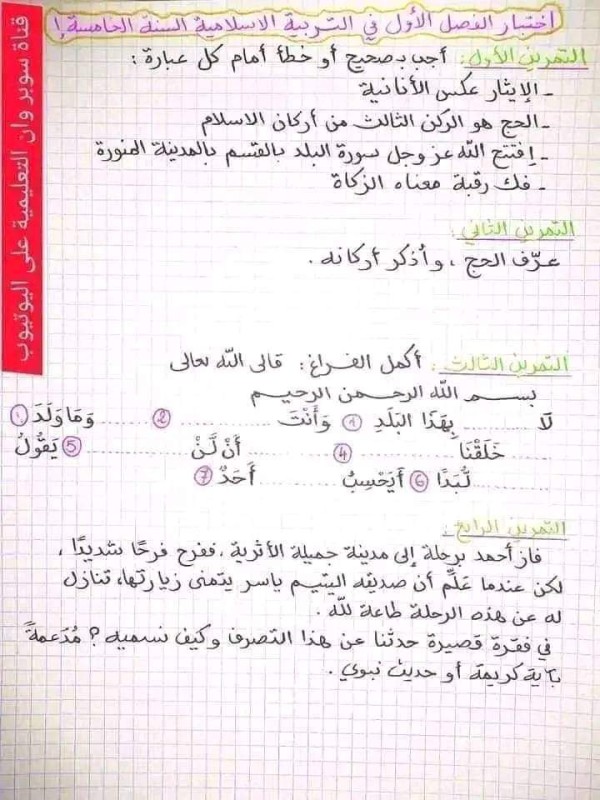 اختبار الفصل الأول في التربية الاسلامية السنة الخامسة إ
التمرين الأول: أجب بـ صحيح أو خطأ أمام كل عبارة:
- الإيثار عكس الأنانية
- الحج هو الركن الثالث من أركان الاسلام
- إفتتح الله عز وجل سورة البلد بالقسم بالمدينة المنورة
- فك رقبة معناه الزكاة
التمرين الثاني:
عرّف الحج ، وأذكر أركانه .
التمرين الثالث: أكمل الفراغ: قال الله تعالى
بسم الله الرحمن الرحيم
لَا ........ بِهَذَا البَلَدِ ① وَأَنْتَ ........ ② ........ وَمَا وَلَدَ ①
خَلَقْنَا ........ ④ ........ أَنْ لَنْ ........ ⑤ يَقُولُ
........ لُّبَدًا ⑥ أَيَحْسِبُ ........ أَحَدٌ ⑦
التمرين الرابع:
فاز أحمد برحلة إلى مدينة جميلة الأثرية ، ففرح فرحًا شديدًا ،
لكن عندما عَلِمَ أن صديقه اليتيم ياسر يتمنى زيارتها، تنازل
له عن هذه الرحلة طاعة للّه .
في فقرة قصيرة حدثنا عن هذا التصرف وكيف نسميه ؟ مُدَعمةً
بآية كريمة أو حديث نبوي .
قناة سوبر وان التعليمية على اليوتيوب